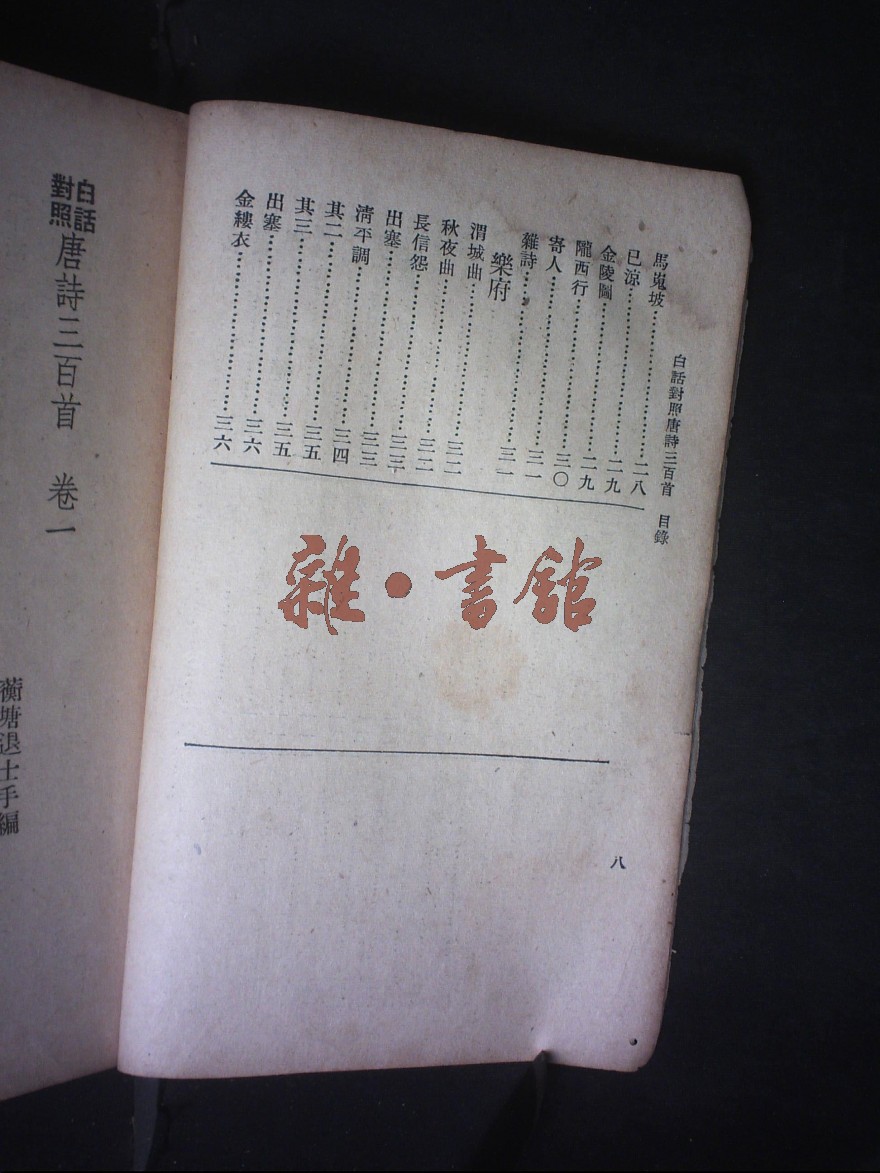 白話對照唐詩三百首 目錄
馬嵬坡……………………二八
已涼……………………二九
金陵圖……………………二九
隴西行……………………三〇
寄人……………………三一
雜詩……………………三一
樂府
渭城曲……………………三二
秋夜曲……………………三二
長信怨……………………三三
出塞……………………三三
清平調……………………三四
其二……………………三五
其三……………………三五
出塞……………………三六
金縷衣……………………三六
八
雜•書館
白話對照唐詩三百首 卷一
蘅塘退士手編